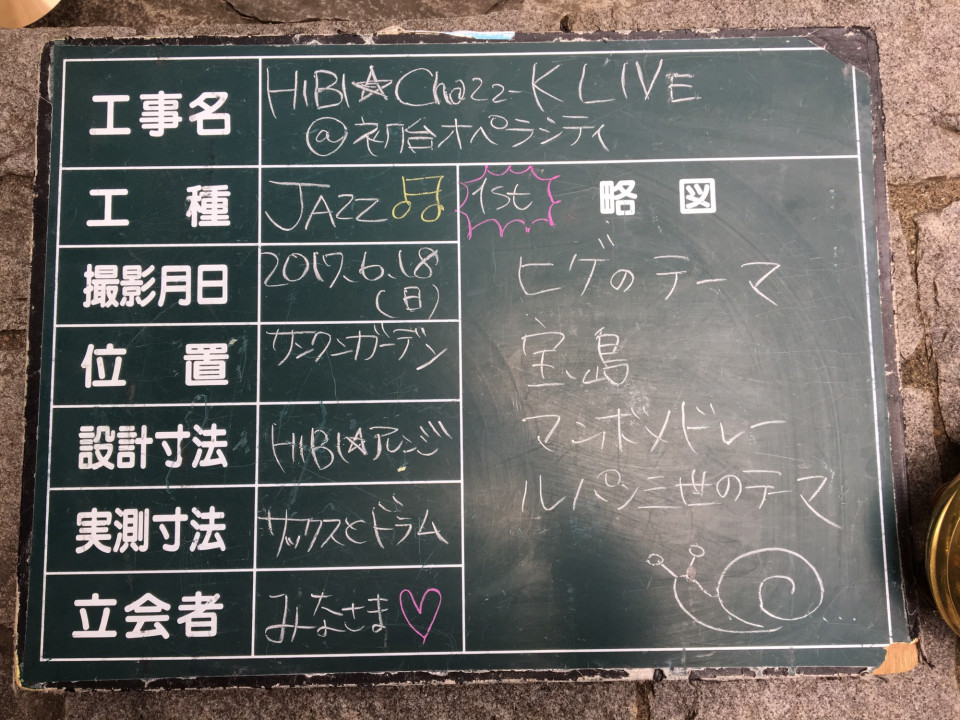 工事名 HIBI☆Chazz-K LIVE
@初台オペラシティ
工種 JAZZ♫
撮影月日 2017.6.18
(日)
位置 サンクンガーデン
設計寸法 HIBI☆アレンジ
実測寸法 サックスとドラム
立会者 みなさま♡
1st 略図
ヒゲのテーマ
宝島
マンボメドレー
ルパン三世のテーマ